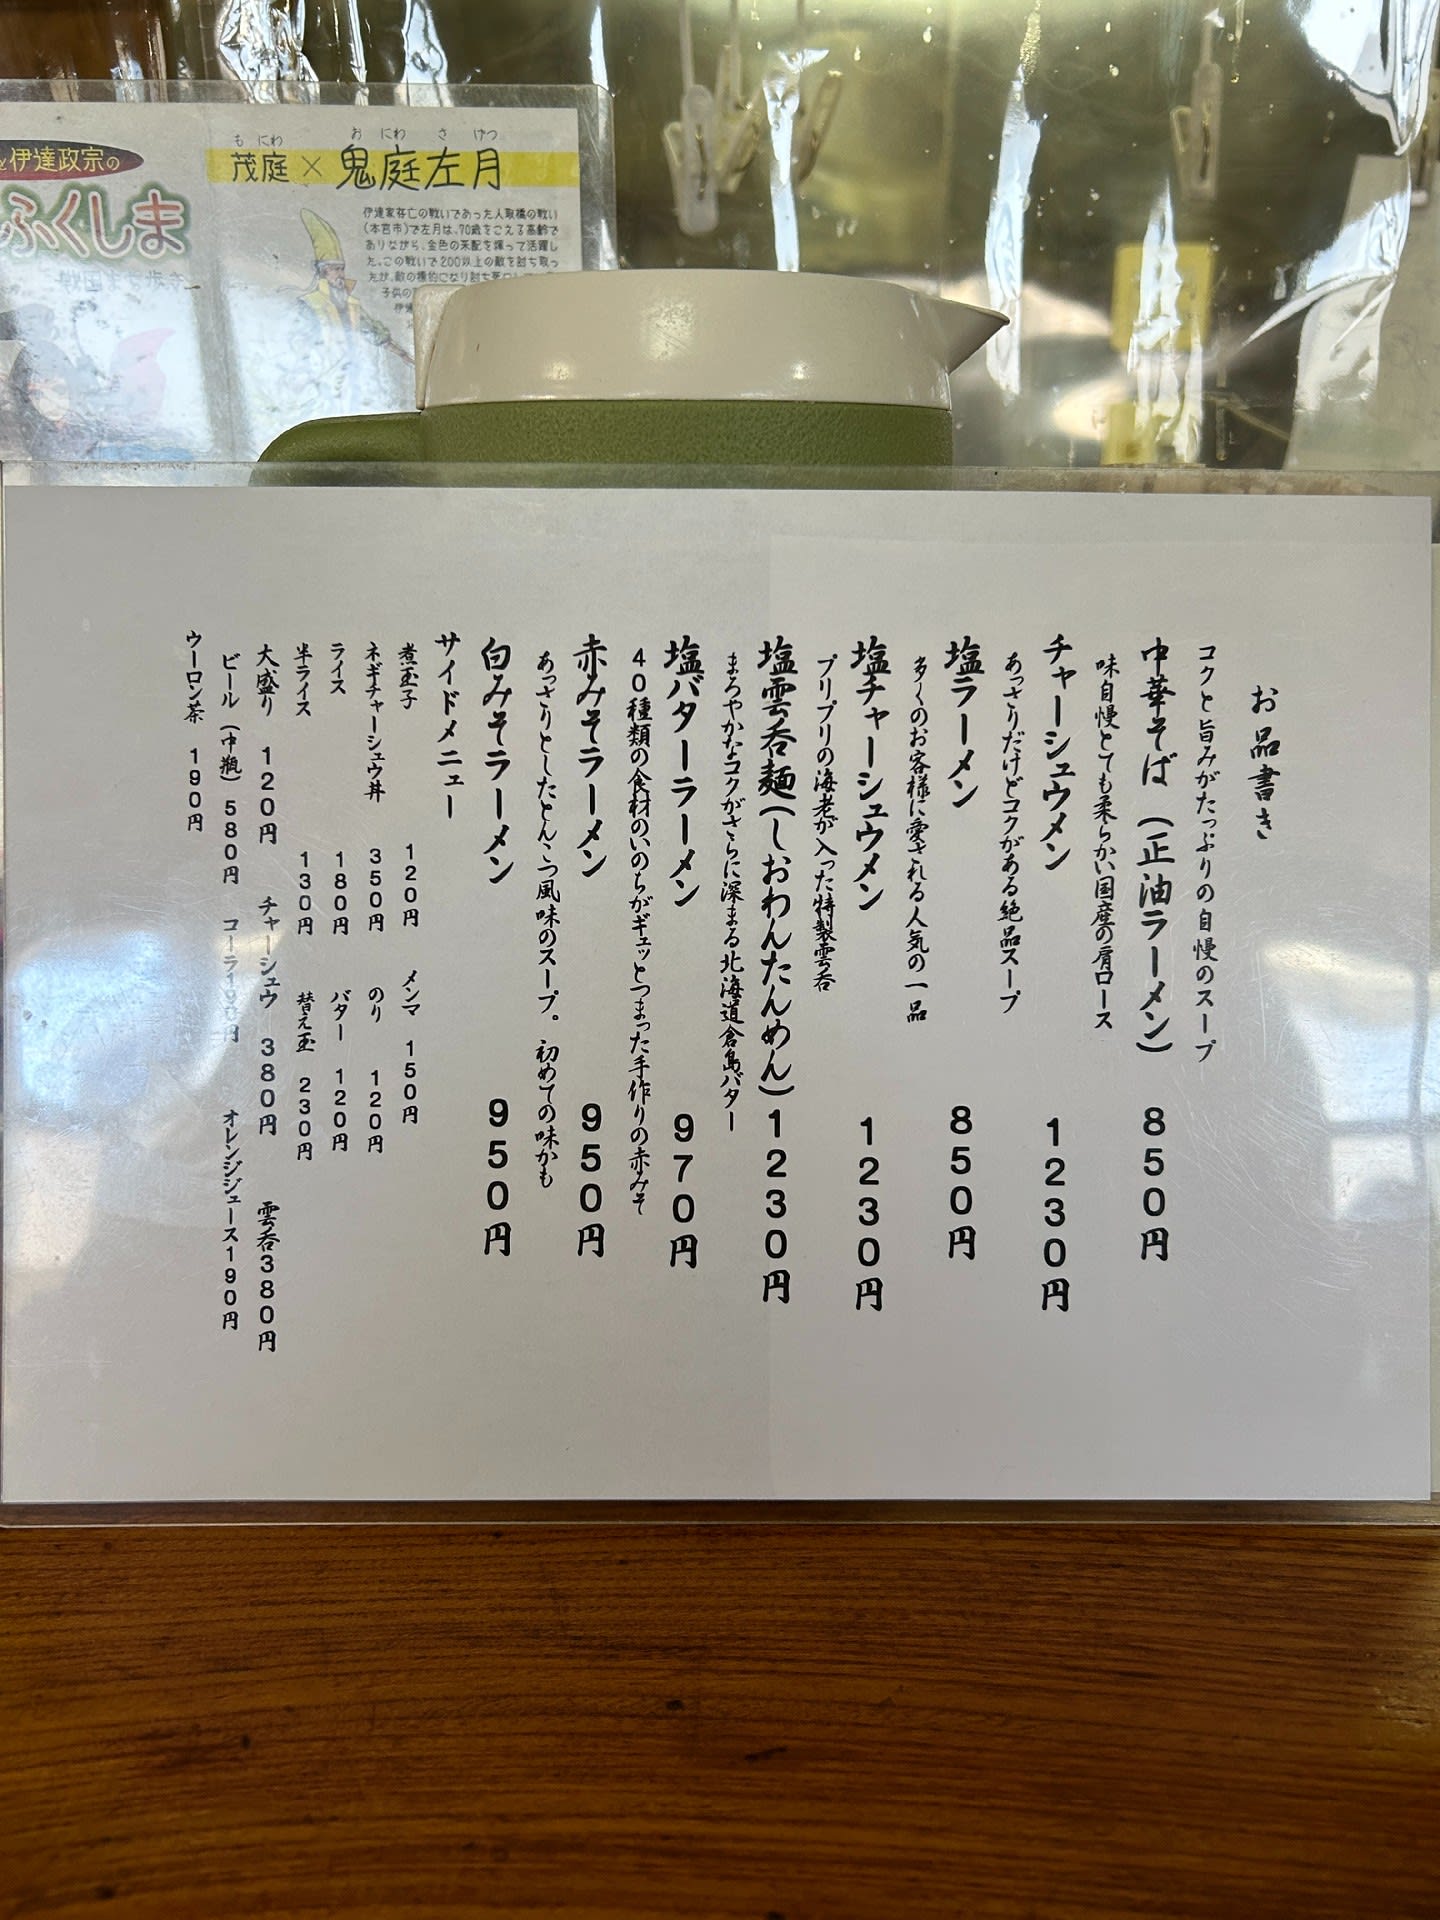 伊達政宗の
ふくしま
もにわ おにわ さげつ
茂庭×鬼庭左月
伊達家存亡の戦いであった人取橋の戦い
(本宮市)で左月は、70歳をこえる高齢で
ありながら、金色の采配を輝って活躍し
た。この戦いで200以上の敵を討ち取っ
たが、敵の標的になり討ち死
子供の
お品書き
コクと旨みがたっぷりの自慢のスープ
中華そば(正油ラーメン) 850円
味自慢とても柔らかい国産の肩ロース
チャーシュウメン 1230円
あっさりだけどコクがある絶品スープ
塩ラーメン 850円
多くのお客様に愛される人気の一品
塩チャーシュウメン 1230円
プリプリの海老が入った特製雲呑
塩雲呑麺(しおわんたんめん)1230円
まろやかなコクがさらに深まる北海道倉島バター
塩バターラーメン 970円
40種類の食材のいのちがギュッとつまった手作りの赤みそ
赤みそラーメン 950円
あっさりとしたとんこつ風味のスープ。初めての味かも
白みそラーメン 950円
サイドメニュー
煮玉子 120円 メンマ 150円
ネギチャーシュウ丼 350円 のり 120円
ライス 180円 バター 120円
半ライス 130円 替え玉 230円
大盛り 120円 チャーシュウ 380円 雲呑380円
ビール(中瓶)580円 コーラ190円 オレンジジュース190円
ウーロン茶 190円